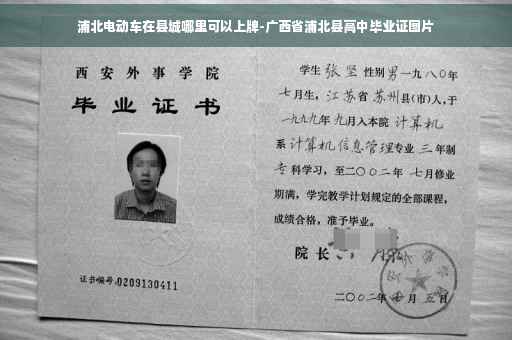 浦北电动车在县城哪里可以上牌-广西省浦北县高中毕业证图片
西安外事学院
毕业证书
证书编号:0209130411
学生张坚性别男一九八〇年
七月生，江苏省苏州县(市)人,于
一九九九年九月入本院计算机
系计算机信息管理专业三年制
专科学习，至二〇〇二年七月修业
期满，学完教学计划规定的全部课程，
成绩合格，准予毕业。
院长
二〇〇二年 月五日